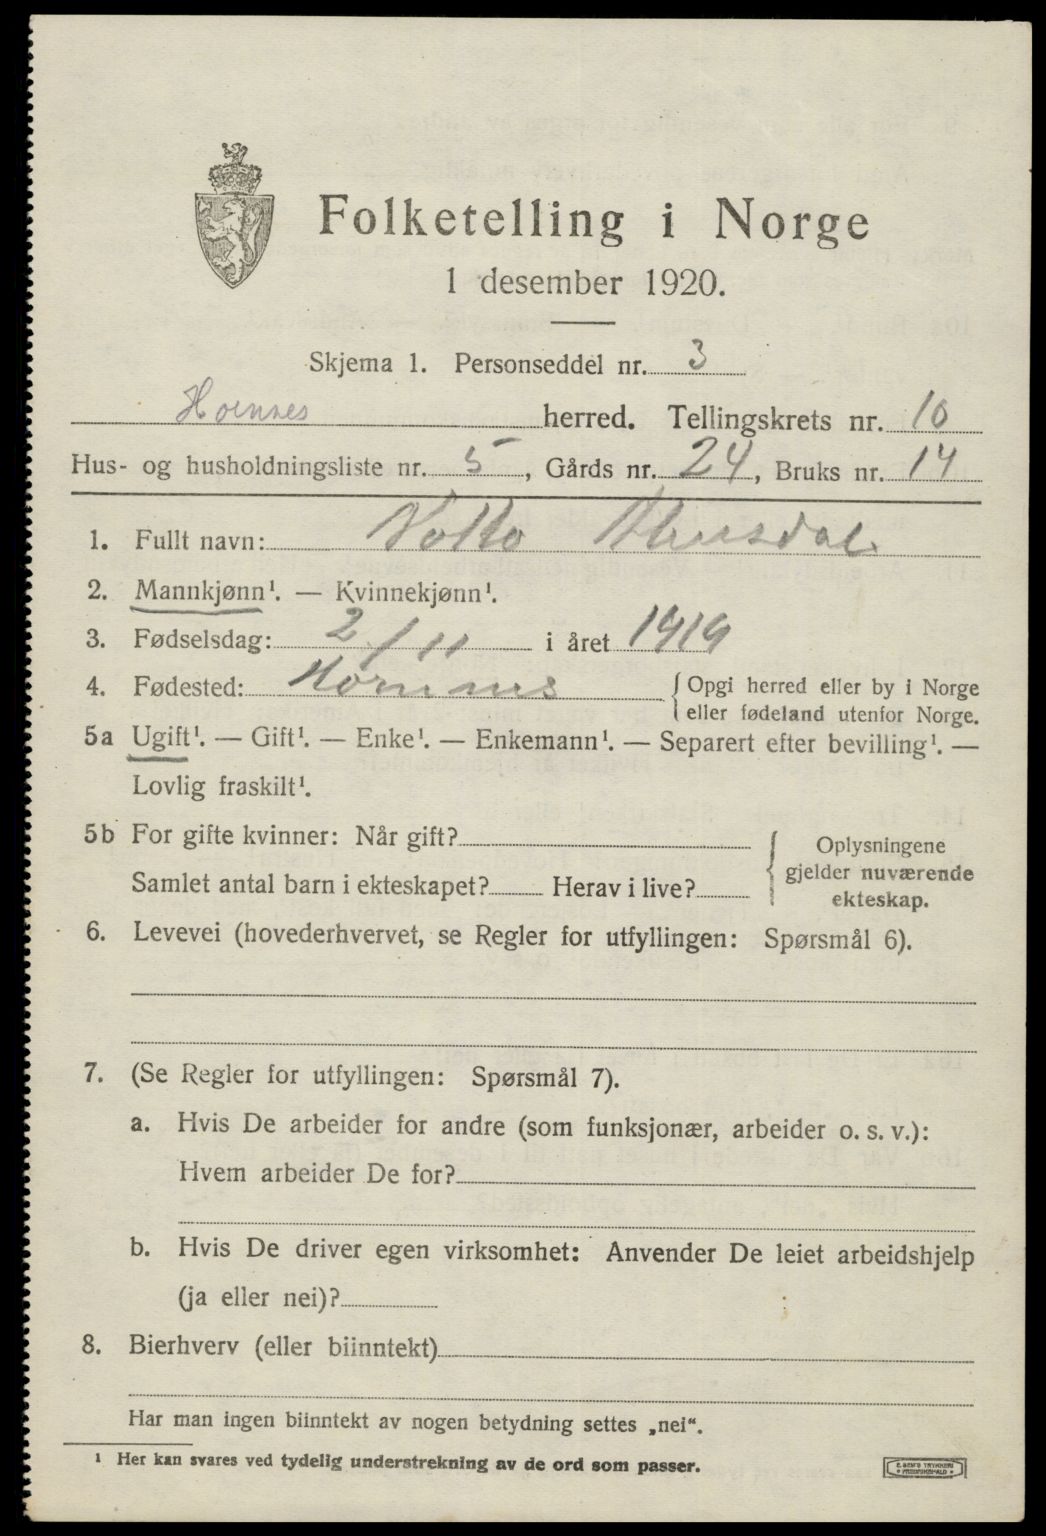 Folketelling i Norge
1 desember 1920.
Skjema 1. Personseddel nr. 3
Hornnes herred. Tellingskrets nr. 10
Hus- og husholdningsliste nr. 5, Gårds nr. 24, Bruks nr. 14
1. Fullt navn:
2. Mannkjønn¹. — Kvinnekjønn¹.
3. Fødselsdag: 2/11 i året 1919
4. Fødested: Hornnes {Opgi herred eller by i Norge
eller fødeland utenfor Norge.
5a Ugift¹. — Gift¹. — Enke¹. — Enkemann¹. — Separert efter bevilling¹. —
Lovlig fraskilt¹.
5b For gifte kvinner: Når gift?
Samlet antal barn i ekteskapet? Herav i live?
Oplysningene
gjelder nuværende
ekteskap.
6. Levevei (hovederhvervet, se Regler for utfyllingen: Spørsmål 6).
7. (Se Regler for utfyllingen: Spørsmål 7).
a. Hvis De arbeider for andre (som funksjonær, arbeider o. s. v.):
Hvem arbeider De for?
b. Hvis De driver egen virksomhet: Anvender De leiet arbeidshjelp
(ja eller nei)?
8. Bierhverv (eller biinntekt)
Har man ingen biinntekt av nogen betydning settes „nei".
¹ Her kan svares ved tydelig understrekning av de ord som passer.